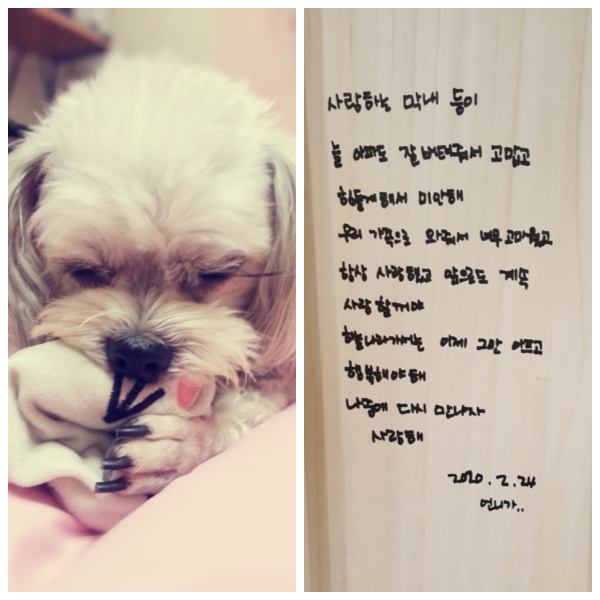 사랑하는 막내 둥이
늘 아파도 잘 버텨줘서 고맙고
힘들게해서 미안해
우리 가족으로 와줘서 너무 고마웠고
항상 사랑했고 앞으로도 계속
사랑 할거야
하늘나라가서는 이제 그만 아프고
행복해야해
나중에 다시 만나자
사랑해
2020.2.24
언니가..